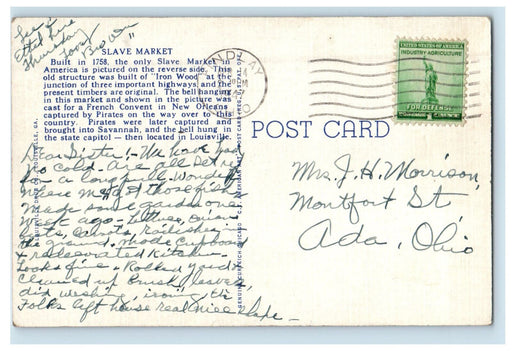 See
Ethel here
Thursday
Love
SLAVE MARKET
Built in 1758, the only Slave Market in
America is pictured on the reverse side. This
old structure was built of "Iron Wood" at the
junction of three important highways and the
present timbers are original. The bell hanging
in this market and shown in the picture was
cast for a French Convent in New Orleans,
captured by Pirates on the way over to this
country. Pirates were later captured and
brought into Savannah, and the bell hung in
the state capitol — then located in Louisville.
Dear Sister:- We have had
cold. Are all better
long
those fish
Made some garden one
week ago - lettuce, onion
beets, carrots, Radishes in
the ground. Made cupboard
+ redecorated Kitchen
Looks fine + Raked yard
cleaned up brush, leaves,
did washing, ironing. the
Folks left house real nice shape -
POST CARD
UNITED STATES OF AMERICA
INDUSTRY AGRICULTURE
FOR DEFENSE
1
Mrs. J. H. Morrison,
Montfort St
Ada, Ohio